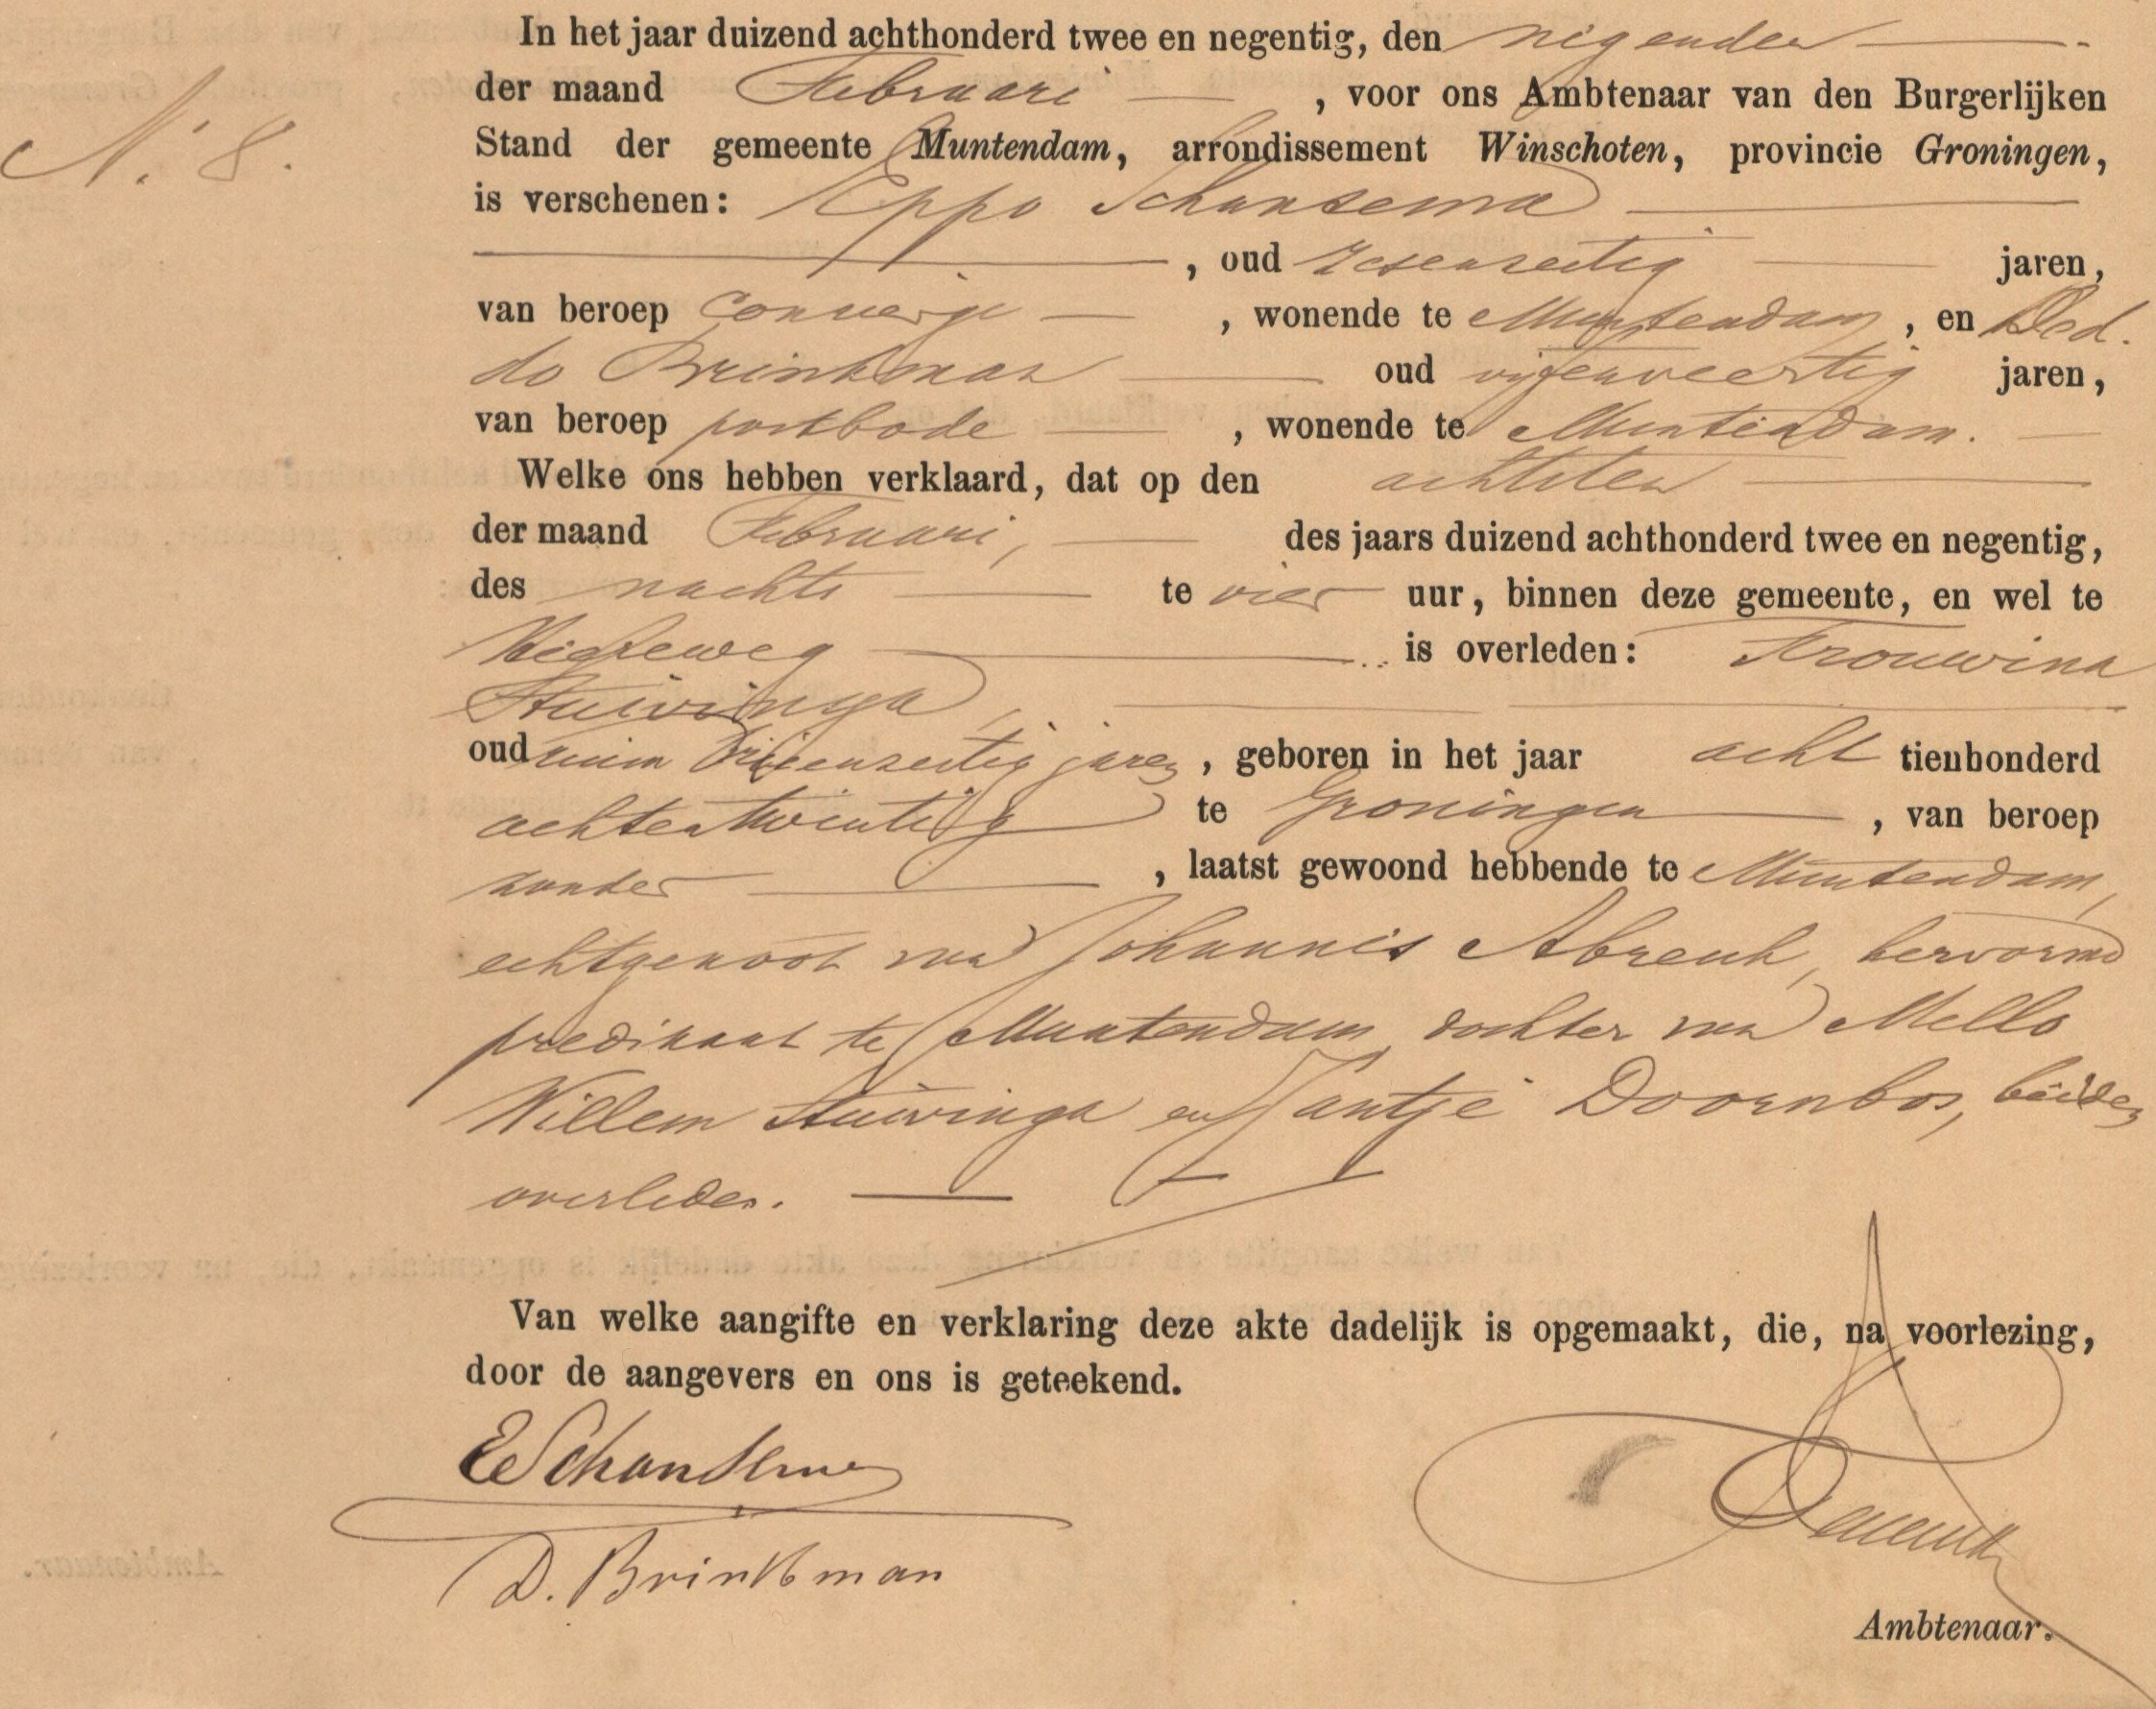 In het jaar duizend achthonderd twee en negentig, den negenden
der maand Februari, voor ons Ambtenaar van den Burgerlijken
N. 8.
Stand der gemeente Muntendam, arrondissement Winschoten, provincie Groningen,
is verschenen: Eppo Schansema
, oud zesenzestig jaren,
van beroep concierge, wonende te Muntendam, en Ded.
do Brinkman oud vijfenveertig jaren,
van beroep postbode, wonende te Muntendam.
Welke ons hebben verklaard, dat op den achtsten
der maand Februari, des jaars duizend achthonderd twee en negentig,
des nachts te vier uur, binnen deze gemeente, en wel te
is overleden: Trouwina
Stuivinga
oud ruim drieenzestig jaren, geboren in het jaar acht tienhonderd
achtentwintig te Groningen, van beroep
zonder, laatst gewoond hebbende te Muntendam,
echtgenoot van Johannis Abreuh, hervormd
predikant te Muntendam, dochter van Mello
Willem Stuivinga en Jantje Doornbos, beiden
overleden.
Van welke aangifte en verklaring deze akte dadelijk is opgemaakt, die, na voorlezing,
door de aangevers en ons is geteekend.
E Schansema
D. Brinkman
Ambtenaar.